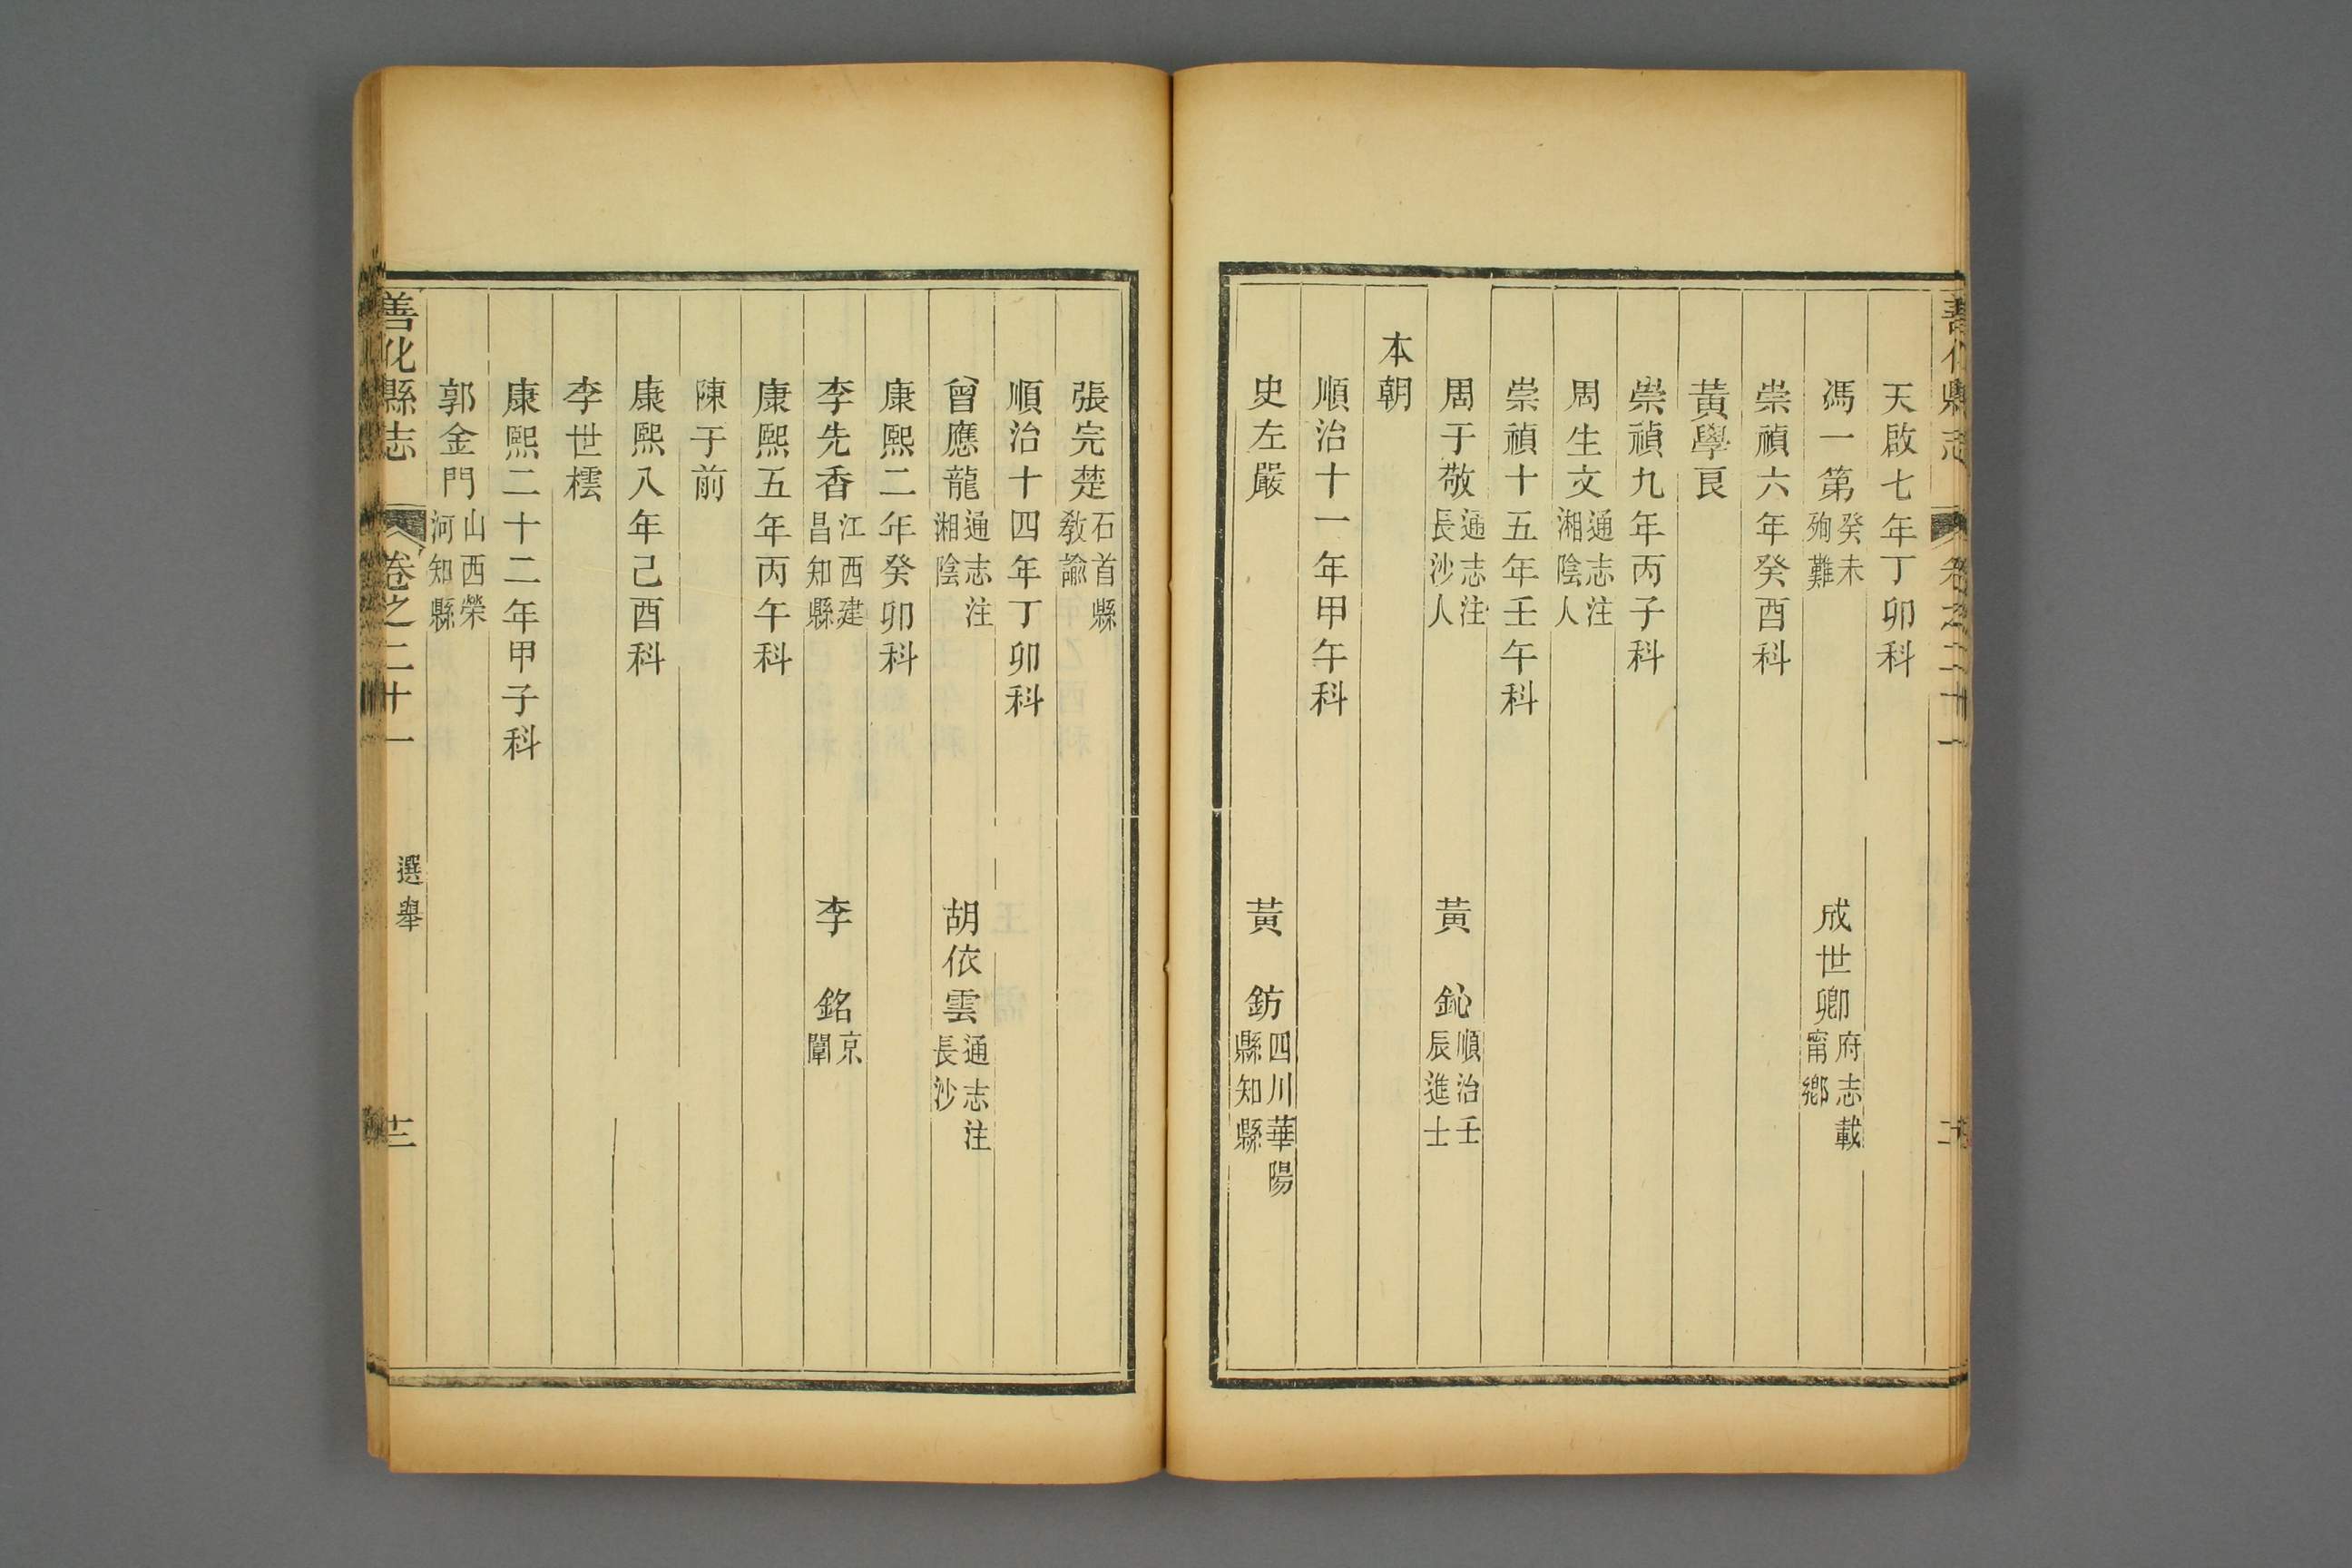 天啟七年丁卯科
馮一第癸未殉難 成世卿府志載甯鄉
崇禎六年癸酉科
黃學良
崇禎九年丙子科
周生文通志注湘陰人
崇禎十五年壬午科
周于敬通志注長沙人 黃鈊順治壬辰進士
本朝
順治十一年甲午科
史左嚴 黃鈁四川華陽縣知縣
張完楚石首縣教諭
順治十四年丁卯科
曾應龍通志注湘陰 胡依雲通志注長沙
康熙二年癸卯科
李先香江西建昌知縣 李銘京闈
康熙五年丙午科
陳于前
康熙八年己酉科
李世橒
康熙二十二年甲子科
郭金門山西榮河知縣
善化縣志 卷之二十一 選舉